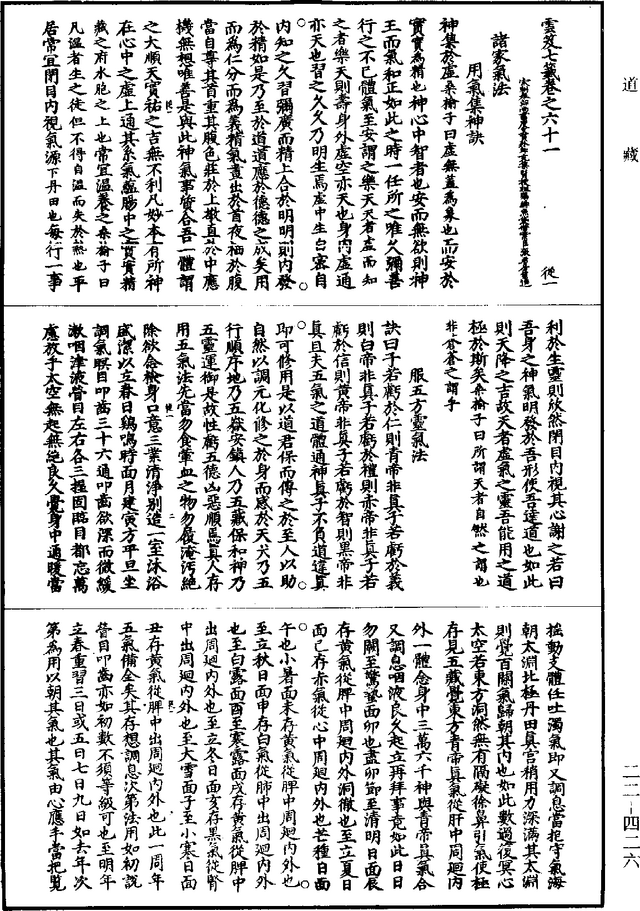 道藏
雲笈七籤卷之六十一 從一
諸家氣法
用氣集神訣
神集於虛桑榆子曰虛無蓋爲象也而安於
實實爲精也神心中智者也安而無欲則神
王而氣和正如此之時一任所之唯久彌善
行之不已體氣至安謂之樂天天者虛而知
之者樂天則壽身外虛空亦天也身內虛通
亦天也習之久久乃明生焉虛中生白審自
內知之久習彌廣而精上合於明明則內發
於精如是乃至於道道應於德德之成矣用
而爲仁分而爲義精氣晝出於首夜栖於腹
當自尊其首重其腹色莊於上敬直於中應
機無想唯善是與此神氣事管合吾一體謂
之大順天實祐之吉無不利凡妙本有所神
在心中之虛上通其系氣蘊腸中之實實精
藏之府水胞之上也常宜溫養之桑榆子曰
凡溫者生之徒但不得自溫而失於熱也平
居常宜閉目內視氣源下丹田也每行一事
利於生靈則欣然閉目內視其心謝之若曰
吾身之神氣明發於吾形使吾達道也如此
則天降之吉故天者虛氣之靈吾能用之道
極於斯矣桑榆子曰所謂天者自然之謂也
非蒼蒼之謂乎
服五方靈氣法
訣曰子若虧於仁則青帝非真子若虧於義
則白帝非真子若虧於禮則赤帝非真子若
虧於信則黃帝非真子若虧於智則黑帝非
真且夫五氣之道體通神真子不負道違真
即可修用是以道君保而傳之於至人以助
自然以調元化修之於身而感於天天乃五
行順序地乃五嶽安鎮人乃五藏保和神乃
五靈運御是故性虧五德凶惡順焉真人存
用五氣法先當勿食葷血之物勿履淹污絕
除欲念檢身口意三業清淨別造一室沐浴
盛潔以立春日鷄鳴時面月建寅方平旦坐
調氣瞑目叩齒三十六通叩齒欲深而微緩
漱咽津液營目左右各三握固臨目都忘萬
慮放乎太空無起無絕良久覺身中通暖當
搖動支體任吐濁氣即又調息當抱守氣海
朝太淵北極丹田真宮稍用力深滿其太淵
則覺百關氣歸朝其內也如此數過復冥心
太空若東方洞然無有隔礙徐鼻引氣使極
存見五藏覺東方青帝真氣從肝中周迴內
外一體念身中三萬六千神與青帝真氣合
又調息咽液良久起立再拜事竟如此日日
勿闕至驚蟄面卯也盡卯節至清明日面辰
存黃氣從脾中周迴內外洞徹也至立夏日
面巳存赤氣從心中周迴內外也芒種日面
午也小暑面未存黃氣從脾中周迴內外也
至立秋日面申存白氣從肺中出周迴內外
也至白露面酉至寒露面戌存黃氣從脾中
出周迴內外也至立冬日面亥存黑氣從腎
中出周迴內外也至大雪面子至小寒日面
丑存黃氣從脾中出周迴內外也此一周年
五氣備全矣其存想調息次第法用如初說
營目叩齒亦如初數不須等級可也至明年
立春重習三日或五日七日九日如去年次
第爲用以朝其氣也其氣由心應手當把覽
二二—四二六